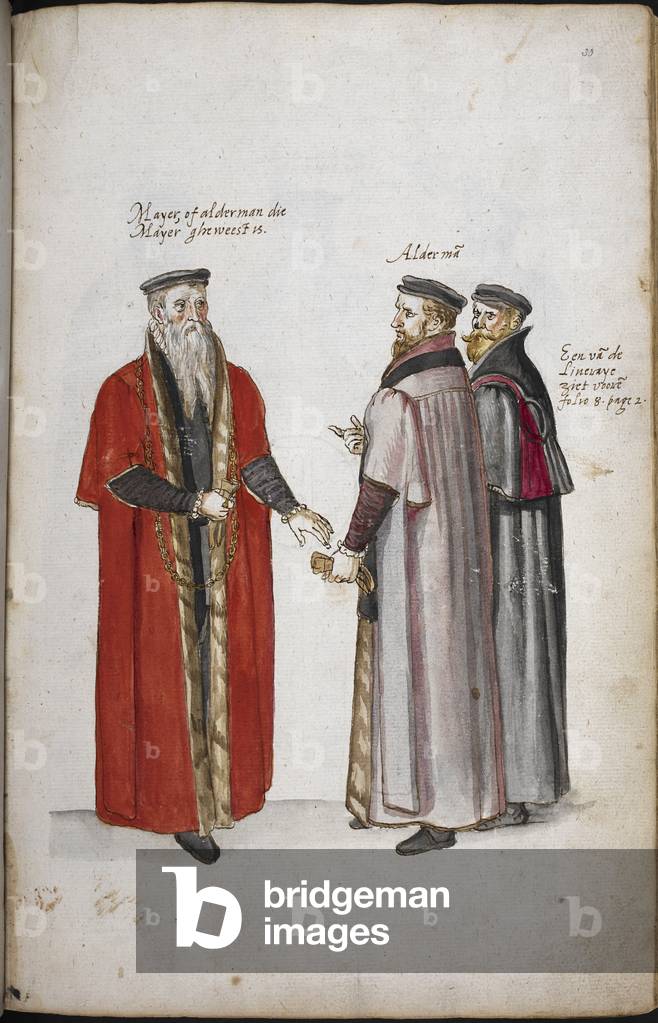 30
Mayer, of alderman die
Mayer gheweest is.
Aldermā
Een vā de
Lineraye
ziet voorē
folio 8. page 2.
b
bridgeman
images